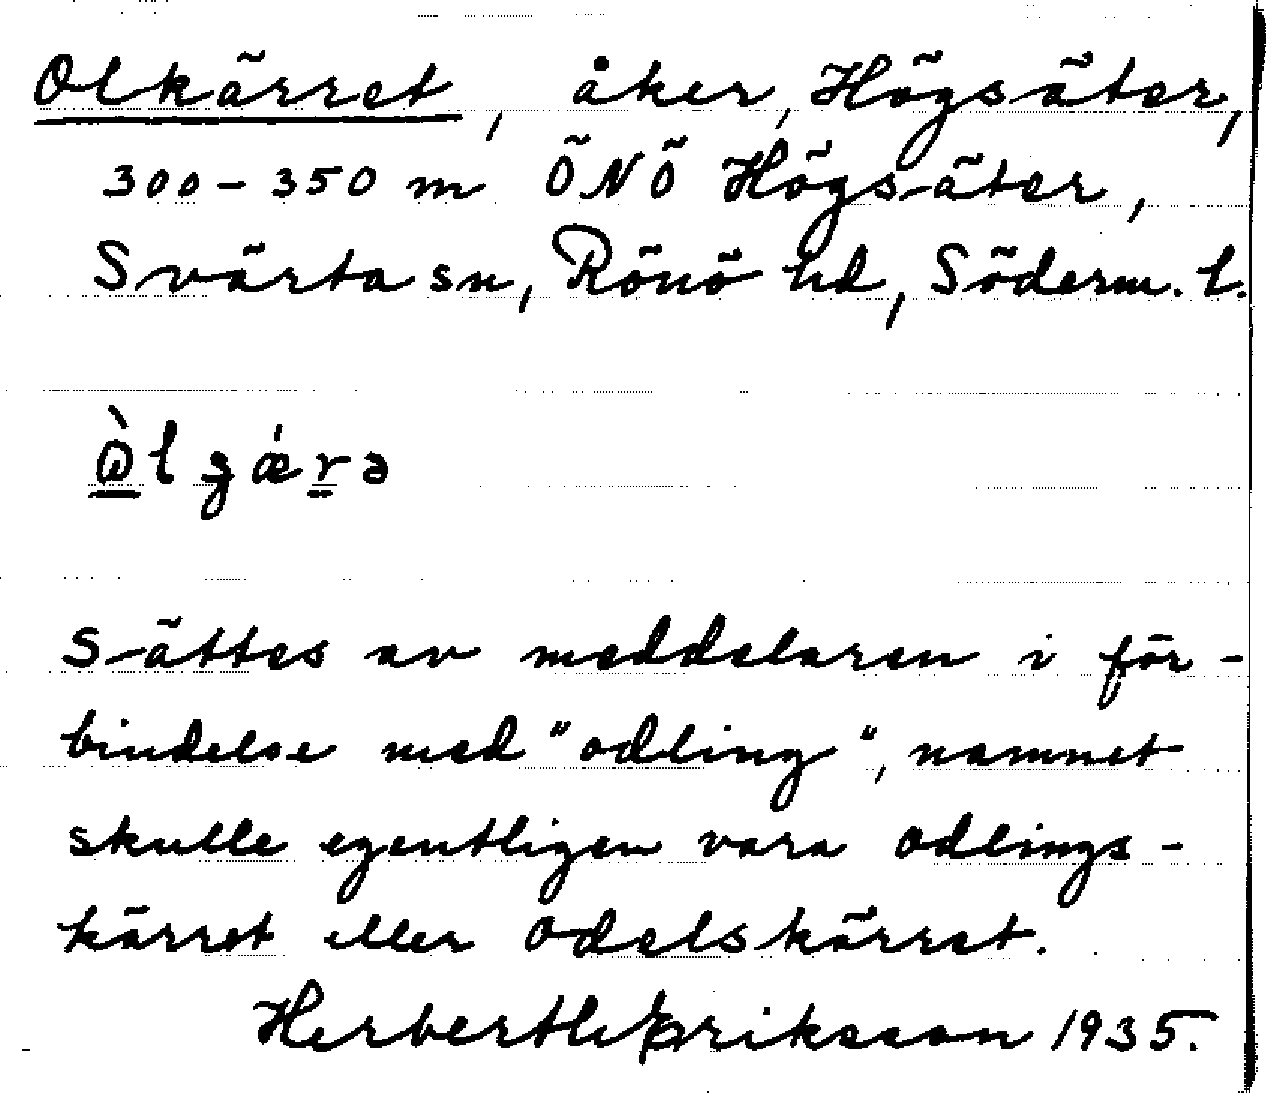 Olkärret, åker, Högsäter,
300-350 m ÖNÖ Högsäter,
Svärta sn, Rönö hd, Söderm. l.
Sättes av meddelaren i för-
bindelse med "odling", namnet
skulle egentligen vara Odlings-
kärret eller Odelskärret.
Eriksson 1935.